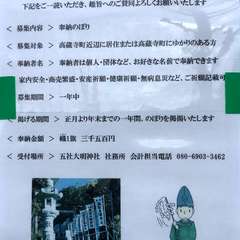 下記をご一読いただき、趣旨へのご賛同よろしくお願いいたします
＜ 募集内容 ＞ 奉納のぼり
＜ 募集対象 ＞ 高蔵寺町近辺に居住または高蔵寺町にゆかりのある方
＜ 奉納者名 ＞ 奉納者は個人・団体など、お好きな名前で奉納できます
家内安全・商売繁盛・安産祈願・健康祈願・無病息災など、ご祈願記載可
＜ 募集期間 ＞ 一年中
＜掲げる期間＞ 正月より年末までの一年間、のぼりを掲揚いたします
＜ 奉納金額 ＞ 幟1旗 三千五百円
＜ 受付場所 ＞ 五社大明神社 社務所 会計担当電話 080-6903-3462